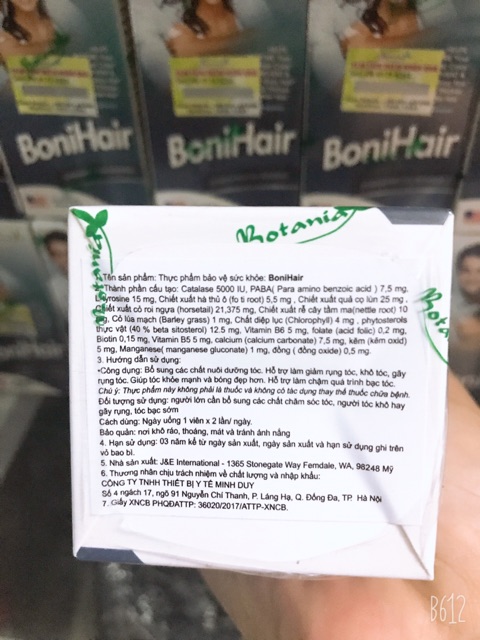 BoniHair
BoniHair
BoniHair
Botania
Botania
Bota
1. Tên sản phẩm: Thực phẩm bảo vệ sức khỏe: BoniHair
Thành phần cấu tạo: Catalase 5000 IU, PABA( Para amino benzoic acid ) 7,5 mg,
L-tyrosine 15 mg, Chiết xuất hà thủ ô (fo ti root) 5,5 mg , Chiết xuất quả cọ lùn 25 mg ,
Chiết xuất cỏ roi ngựa (horsetail) 21,375 mg, Chiết xuất rễ cây tầm ma(nettle root) 10
mg, Cỏ lúa mạch (Barley grass) 1 mg, Chất diệp lục (Chlorophyl) 4 mg , phytosterols
thực vật (40 % beta sitosterol) 12.5 mg, Vitamin B6 5 mg, folate (acid folic) 0,2 mg,
Biotin 0,15 mg, Vitamin B5 5 mg, calcium (calcium carbonate) 7,5 mg, kẽm (kẽm oxid)
5 mg, Manganese( manganese gluconate) 1 mg, đồng ( đồng oxide) 0,5 mg.
3. Hướng dẫn sử dụng:
•Công dụng: Bổ sung các chất nuôi dưỡng tóc. Hỗ trợ làm giảm rụng tóc, khô tóc, gãy
rụng tóc. Giúp tóc khỏe mạnh và bóng đẹp hơn. Hỗ trợ làm chậm quá trình bạc tóc.
Chú ý: Thực phẩm này không phải là thuốc và không có tác dụng thay thế thuốc chữa bệnh.
Đối tượng sử dụng: người lớn cần bổ sung các chất chăm sóc tóc, người tóc khô hay
gãy rụng, tóc bạc sớm
Cách dùng: Ngày uống 1 viên x 2 lần/ ngày.
Bảo quản: nơi khô ráo, thoáng, mát và tránh ánh nắng
4. Hạn sử dụng: 03 năm kể từ ngày sản xuất, ngày sản xuất và hạn sử dụng ghi trên
vỏ bao bì.
5. Nhà sản xuất: J&E International - 1365 Stonegate Way Ferndale, WA, 98248 Mỹ
6. Thương nhân chịu trách nhiệm về chất lượng và nhập khẩu:
CÔNG TY TNHH THIẾT BỊ Y TẾ MINH DUY
Số 4 ngách 17, ngõ 91 Nguyễn Chí Thanh, P. Láng Hạ, Q. Đống Đa, TP. Hà Nội
7. Giấy XNCB PHQĐATTP: 36020/2017/ATTP-XNCB.
B612